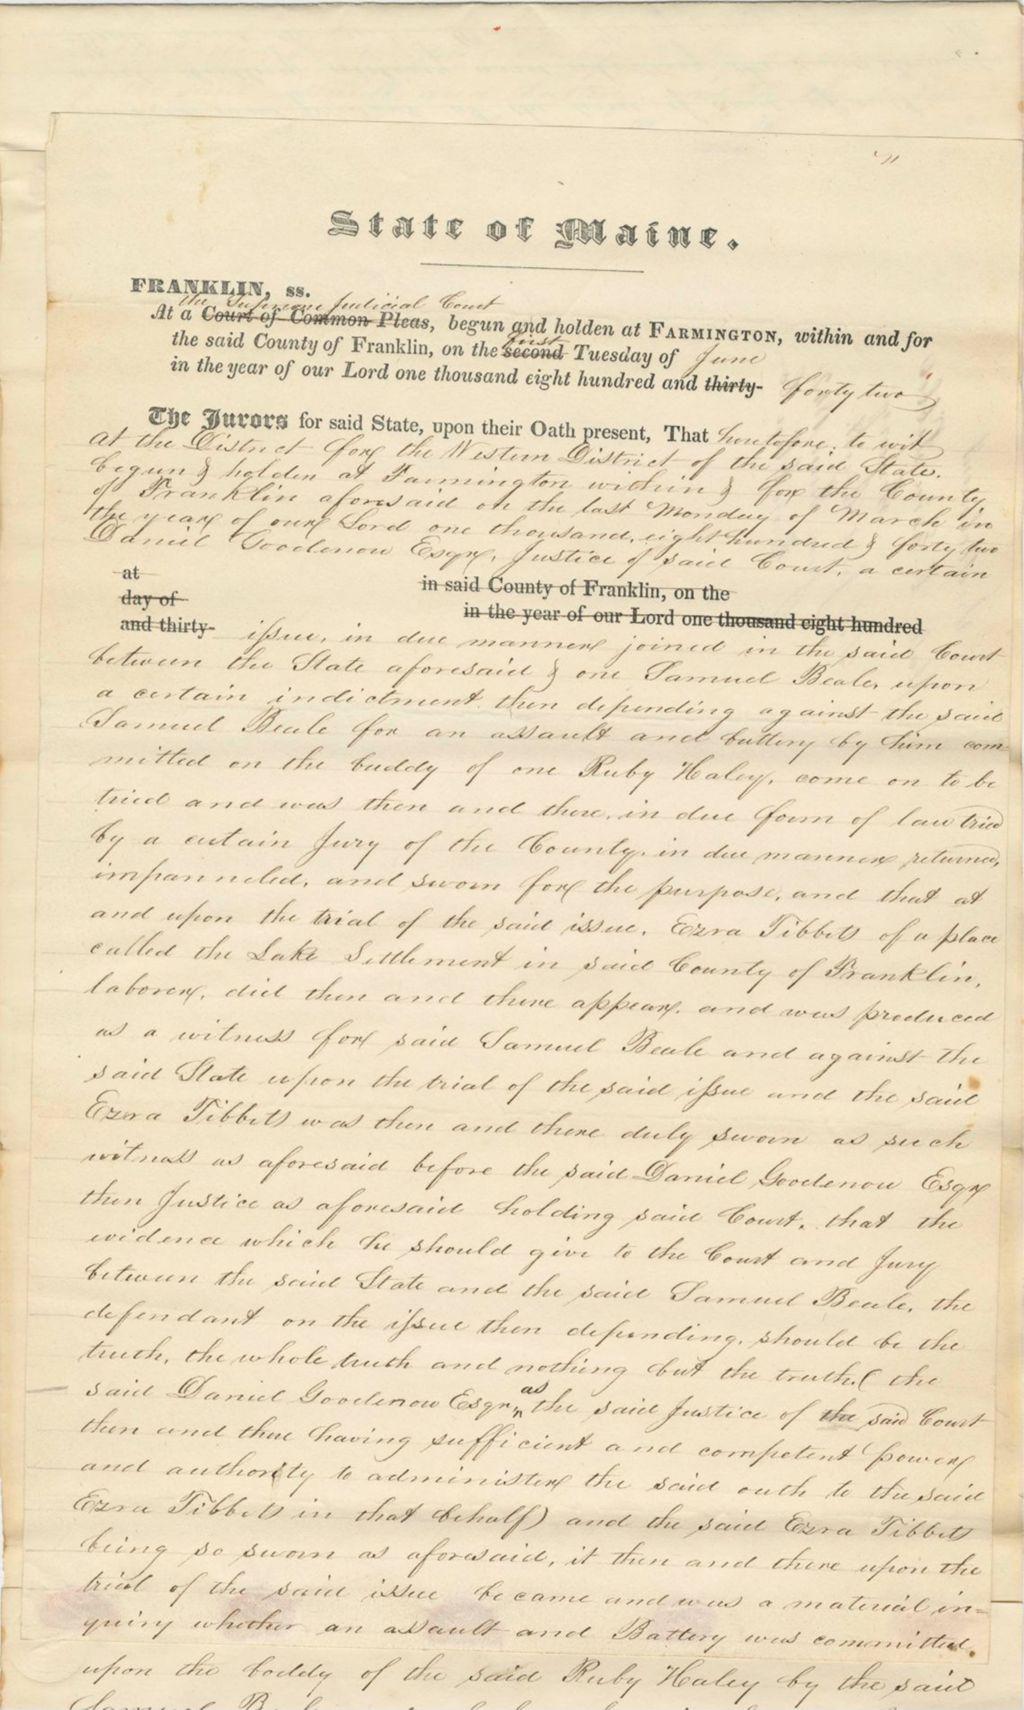 State of Maine.
FRANKLIN, ss.
the Supreme Judicial Court
At a Court of Common Pleas, begun and holden at FARMINGTON, within and for
first
the said County of Franklin, on the second Tuesday of June
in the year of our Lord one thousand eight hundred and thirty- forty two
The Jurors for said State, upon their Oath present, That heretofore, to wit
at the District for the Western District of the said State.
begun & holden at Farmington within & for the County
of Franklin aforesaid on the last Monday of March in
the year of our Lord one thousand, eight hundred & forty two
Daniel Goodenow Esqr, Justice of said Court, a certain
at in said County of Franklin, on the
day of in the year of our Lord one thousand eight hundred
and thirty- issue, in due manner joined in the said Court
between the State aforesaid & one Samuel Beale, upon
a certain indictment then depending against the said
Samuel Beale for an assault and battery by him com-
mitted on the boddy of one Ruby Haley, come on to be
tried and was then and there, in due form of law tried
by a certain Jury of the County, in due manner returned,
impanneled, and sworn for the purpose, and that at
and upon the trial of the said issue, Ezra Tibbets of a place
called the Lake Settlement in said County of Franklin,
laborer, did then and there appear, and was produced
as a witness for said Samuel Beale and against the
said State upon the trial of the said issue and the said
Ezra Tibbets was then and there duly sworn as such
witness as aforesaid before the said Daniel Goodenow Esqr
then Justice as aforesaid holding said Court, that the
evidence which he should give to the Court and Jury
between the said State and the said Samuel Beale, the
defendant on the issue then depending, should be the
truth, the whole truth and nothing but the truth. (the
said Daniel Goodenow Esqr, as the said Justice of the said Court
then and there having sufficient and competent power
and authority to administer the said oath to the said
Ezra Tibbets in that behalf) and the said Ezra Tibbets
being so sworn as aforesaid, it then and there upon the
trial of the said issue became and was a material in=
quiry whether an assault and Battery was committed
upon the boddy of the said Ruby Haley by the said
Samuel